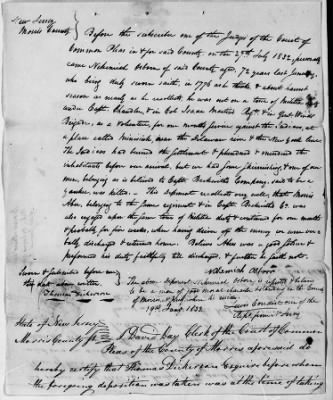 New Jersey
Morris County
Before the subscriber one of the Judges of the Court of
Common Pleas in & for said County on the 27th July 1832, personally
came Nehemiah Osborn of said County aged 72 years last January,
who being duly sworn saith, in 1776 as I think & about harvest
season as nearly as he recollects he was out on a tour of Militia duty
under Captn Chandler, & in Col. Isaac Regt & in Genl Winds
Brigade, as a volunteer, for one month service against the Indians, at
a place called Minisink near the Delaware river & the New York line
The Indians had burned the settlements & plundered & murdered the
inhabitants before our arrival, but we had some skirmishing & one of our
men, belonging as is believed to Captn Beckwiths Company, said to be a
yankee, was killed. This deponent recollects very well, that Morris
belonging to the same regiment & in Captn Beckwiths Co. was
also engaged upon the same tour of Militia duty & continued for one month
& probably for five weeks, when having driven off the enemy we were
discharged & returned home. Believes was a good soldier &
performed his duty faithfully till discharged, & further he saith not.
Sworn & subscribed before me
this date above written
Thomas Dickerson
Nehemiah Osborn
The above deponent Nehemiah Osborn is reputed & believed
to be a man of good moral character residing in the County
of Morris,
19th Jany 1833
Lewis Condict one of the
Reps from N Jersey
State of New Jersey
Morris County ss
I David Day Clerk of the Court of Common
Pleas of the County of Morris aforesaid do
hereby certify that Thomas Dickerson Esquire before whom
the foregoing deposition was taken was at the time of taking